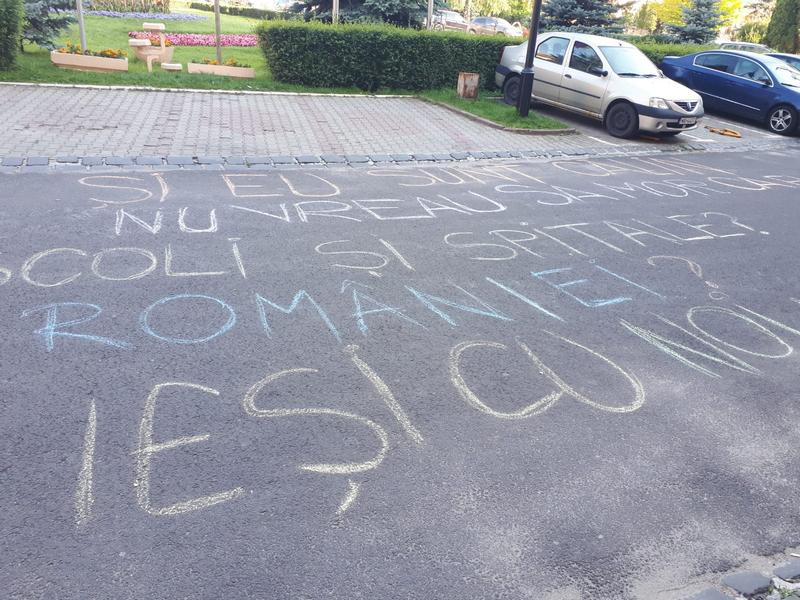 ȘI EU SUNT
NU VREAU SĂ MOR
ȘCOLI ȘI SPITALE?
ROMÂNIEI?
IEȘI CU NOI